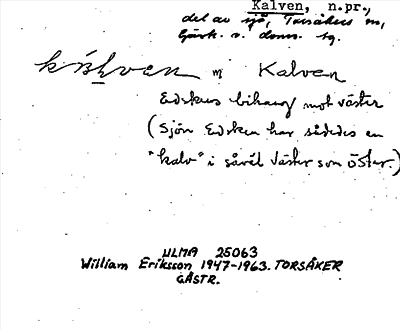 Kalven, n.pr.,
del av sjö, Torsåkers sn,
Gästr. v. doms. tg.
kalven m Kalven
Edskens bihang mot väster
(Sjön Edsken har således en
"kalv" i såväl väster som öster.)
ULMA 25063
William Eriksson 1947-1963. TORSÅKER
GÄSTR.